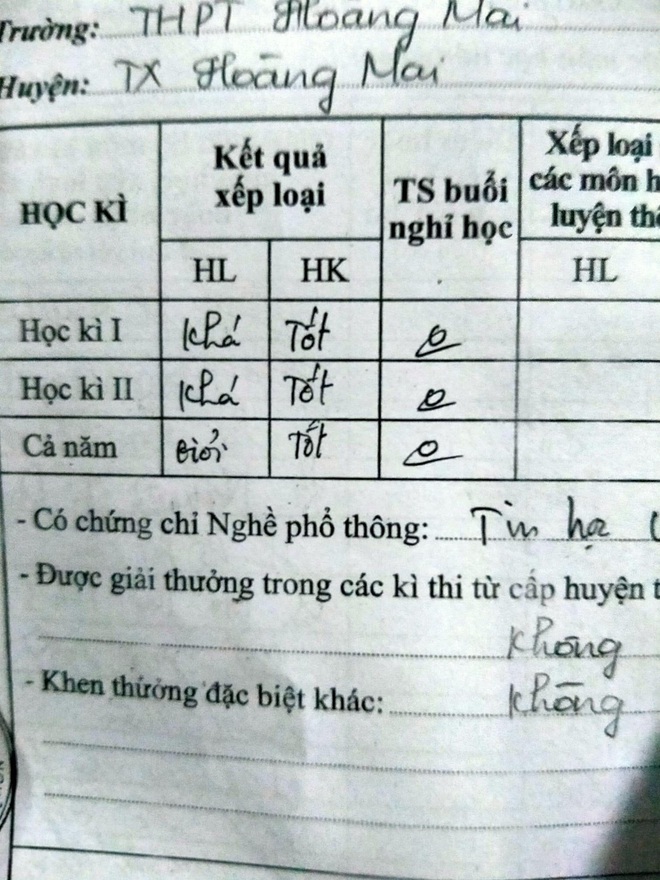 Trường: THPT Hoàng Mai
Huyện: TX Hoàng Mai
HỌC KÌ
Kết quả xếp loại
TS buổi nghỉ học
Xếp loại
các môn h
luyện th
HL HK HL
Học kì I Khá Tốt 0
Học kì II Khá Tốt 0
Cả năm Giỏi Tốt 0
- Có chứng chỉ Nghề phổ thông: Tin học
- Được giải thưởng trong các kì thi từ cấp huyện t
Không
- Khen thưởng đặc biệt khác: Không